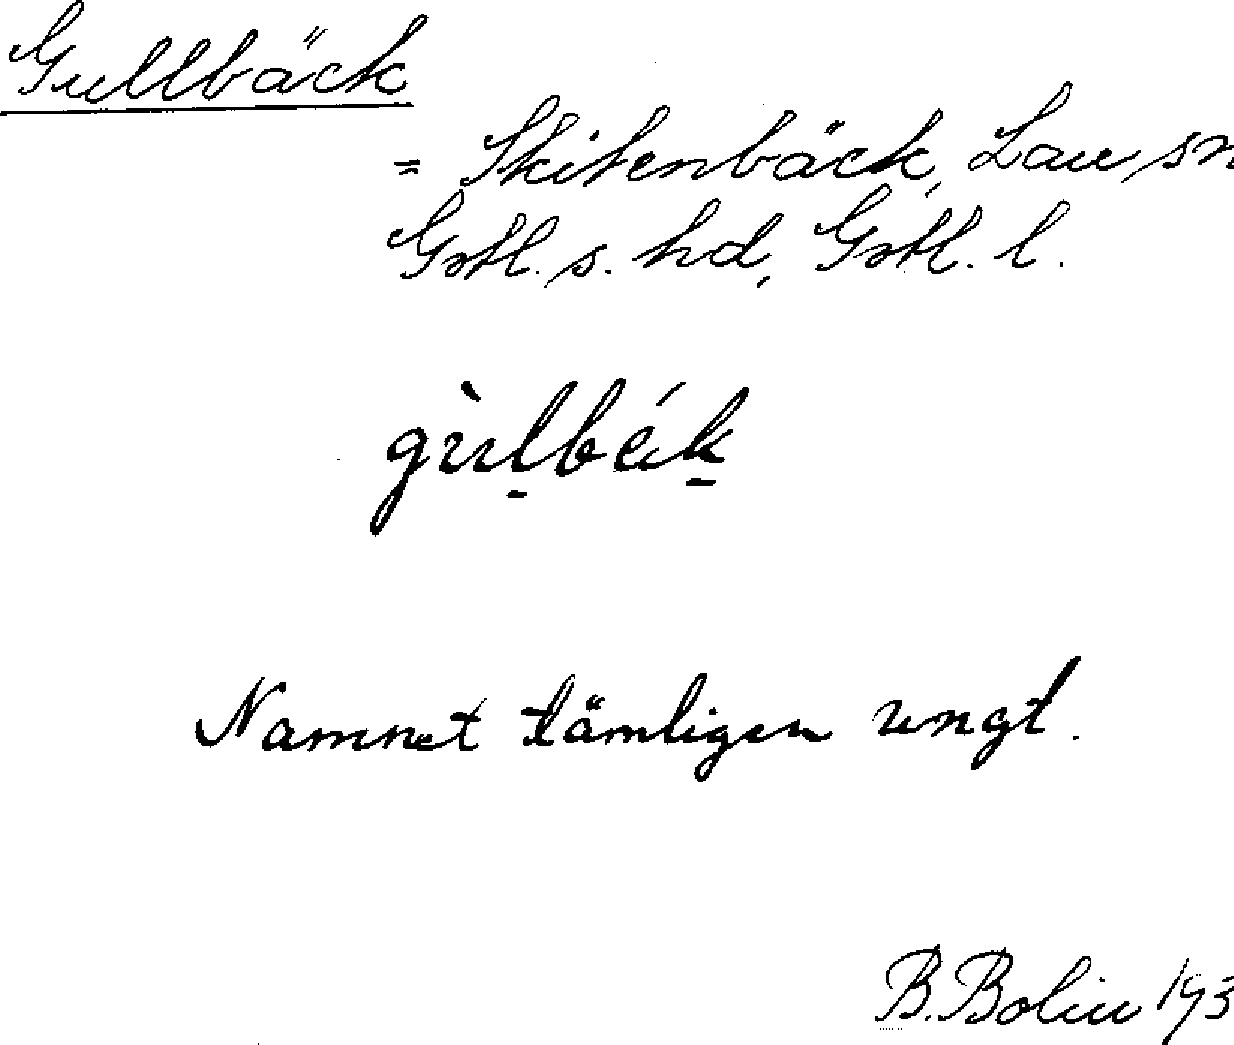 Gullbäck
= Skitenbäck, Lau sn
Gotl. s. hd, Gotl. l.
gùlbák
Namnet tämligen ungt.
B. Bolin 193